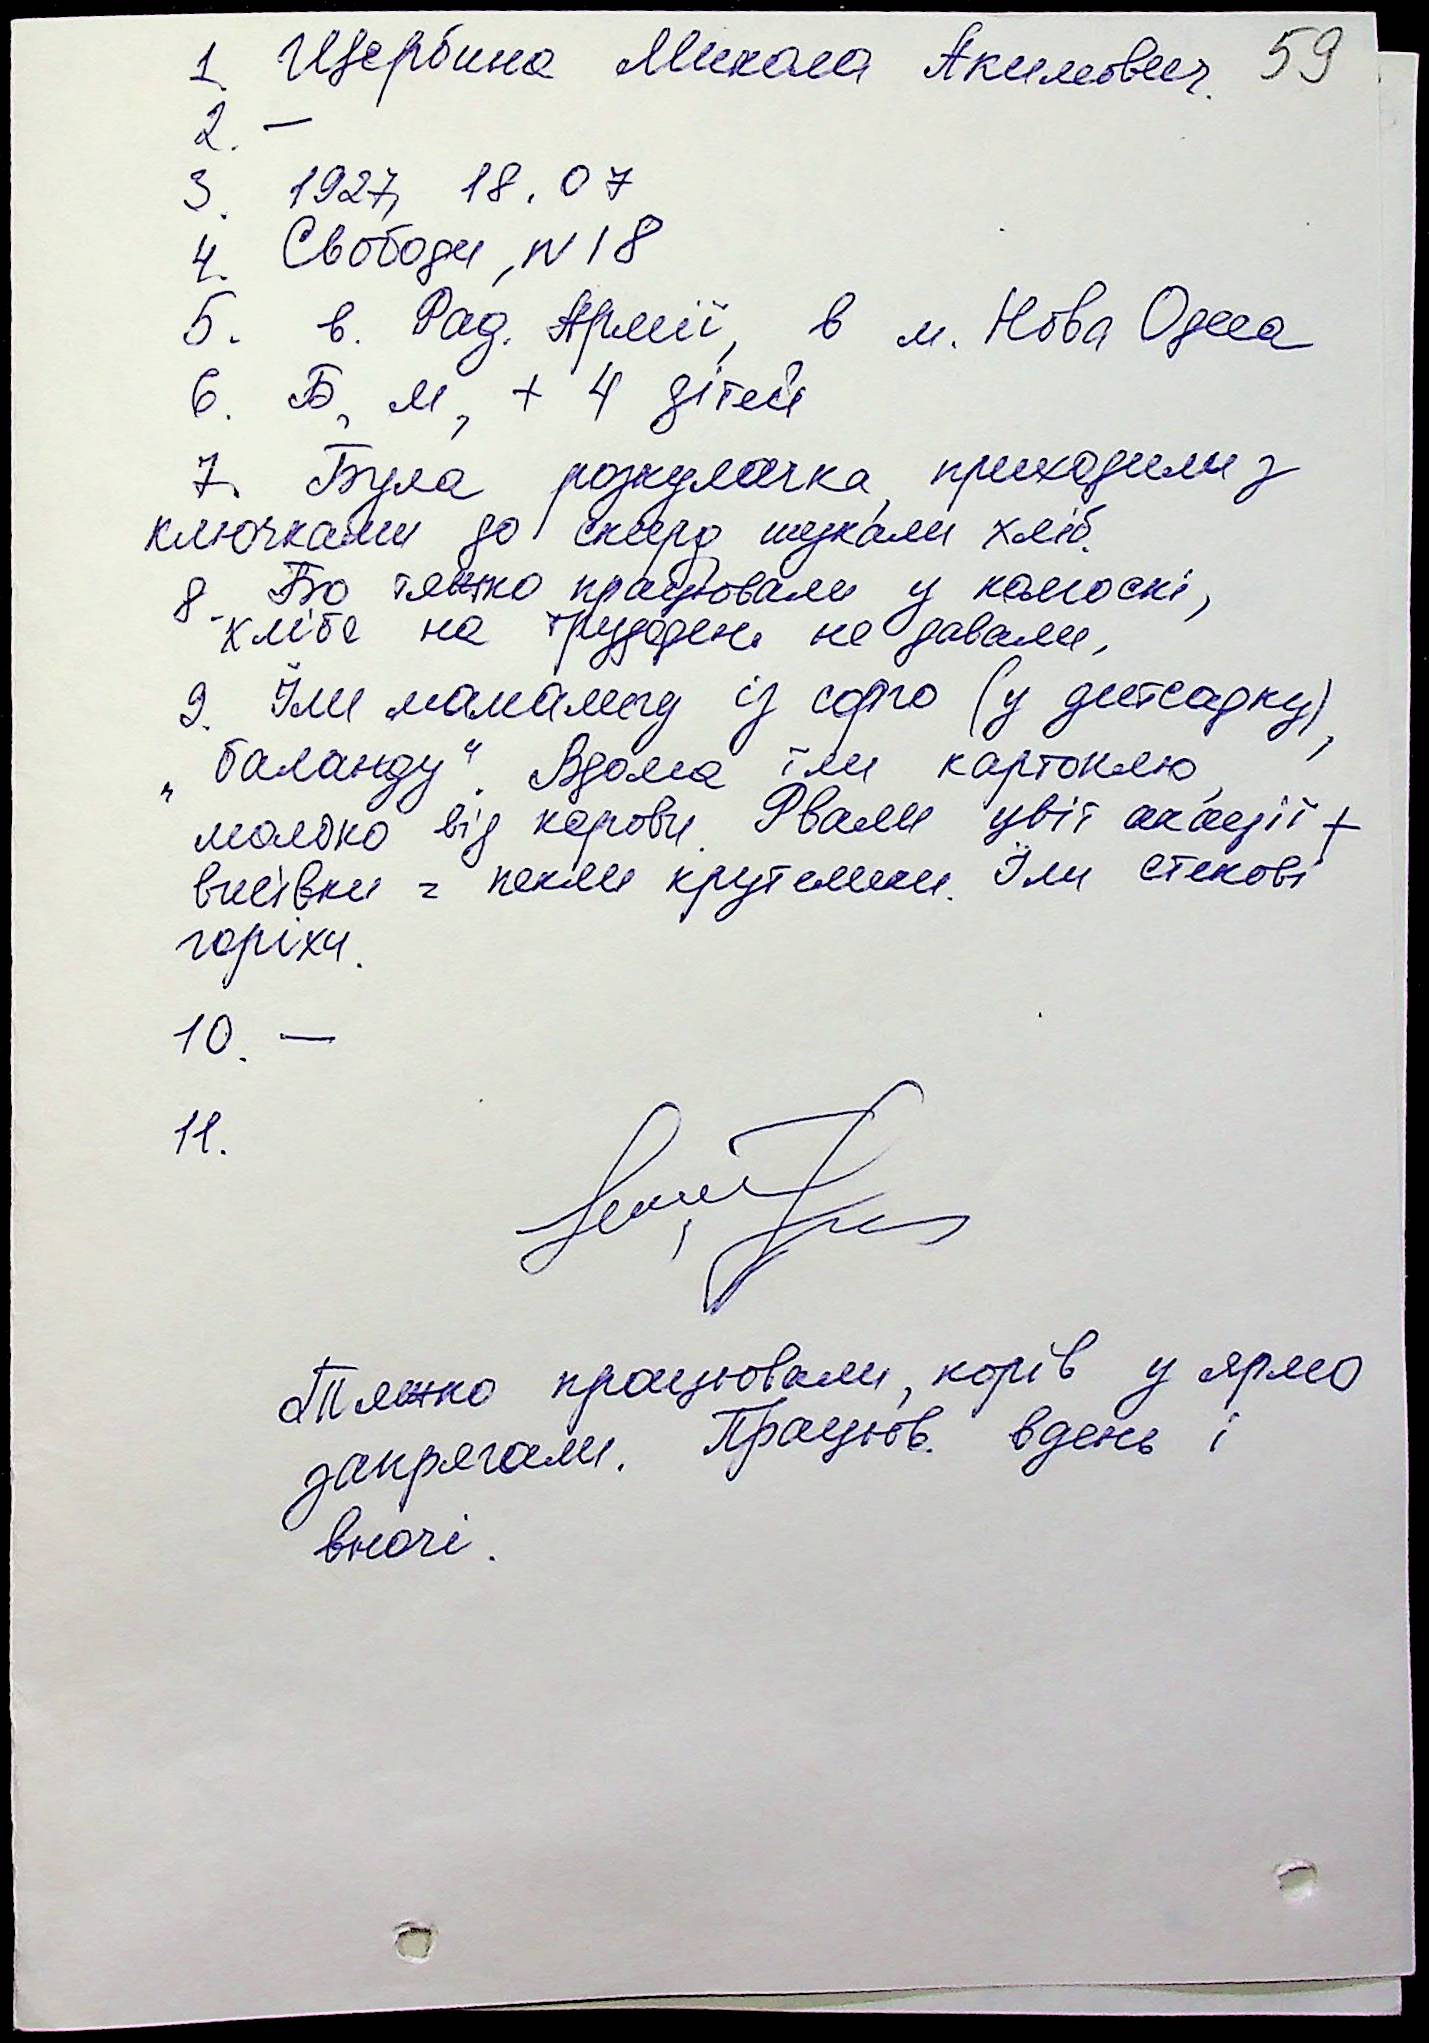 59
1. Щербина Микола Акимович.
2. —
3. 1927, 18.07
4. Свободи, N18
5. в. Рад. Армії, в м. Нова Одеса
6. Б, м, + 4 дітей
7. Була розкулачка, приходили з
ключками до скирд шукали хліб.
8. Бо тяжко працювали у колоскі,
хліба на трудодень не давали,
9. Їли мамалигу із сорго (у дитсадку),
„баланду". Вдома їли картоплю,
молоко від корови. Рвали цвіт акації +
висівки = пекли крутелики. Їли степові
горіхи.
10. —
11.
Тяжко працювали, корів у ярмо
запрягали. Працюв. вдень і
вночі.